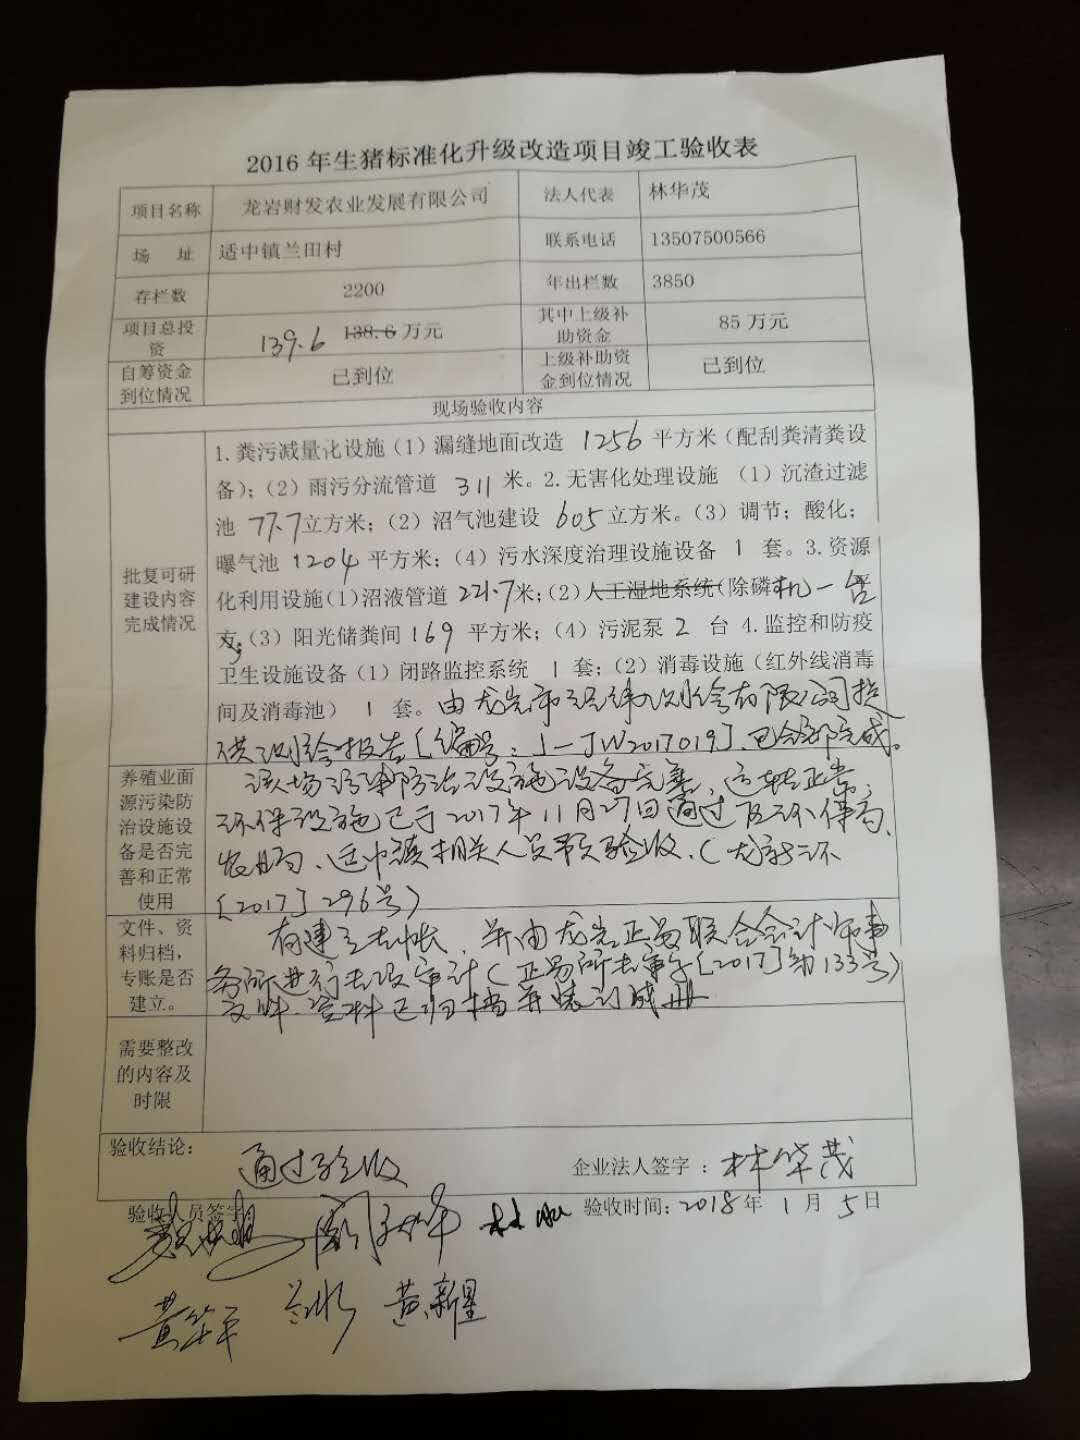 2016年生猪标准化升级改造项目竣工验收表
项目名称 龙岩财发农业发展有限公司 法人代表 林华茂
场 址 适中镇兰田村 联系电话 13507500566
存栏数 2200 年出栏数 3850
项目总投资 139.6 138.6万元 其中上级补助资金 85万元
自筹资金到位情况 已到位 上级补助资金到位情况 已到位
现场验收内容
批复可研建设内容完成情况
1.粪污减量化设施（1）漏缝地面改造 1256 平方米（配刮粪清粪设
备）；（2）雨污分流管道 311 米。2.无害化处理设施 （1）沉渣过滤
池 77.7立方米；（2）沼气池建设 605立方米。（3）调节；酸化；
曝气池 1204 平方米；（4）污水深度治理设施设备 1 套。3.资源
化利用设施(1)沼液管道221.7米；(2)人工湿地系统(除磷机)一台
方；（3）阳光储粪间169 平方米；（4）污泥泵 2 台 4.监控和防疫
卫生设施设备（1）闭路监控系统 1 套；（2）消毒设施（红外线消毒
间及消毒池） 1 套。由龙岩市经纬测绘有限公司提
供测绘报告[编号：J-JW2017019]，已全部完成。
养殖业面源污染防治设施设备是否完善和正常使用
该场污染防治设施设备完善，运转正常，
环保设施已于2017年11月27日通过区环保局、
农业局、适中镇相关人员 验收，（龙新环
[2017]296号）
文件、资料归档，专账是否建立。
有建立专帐，并由龙岩正易联合会计师事
务所进行专项审计（正易所专审字[2017]第133号）
文件、资料已归档并装订成册
需要整改的内容及时限
验收结论：
通过验收 企业法人签字：林华茂
验收人员签字 验收时间：2018年 1月 5日
黄新星